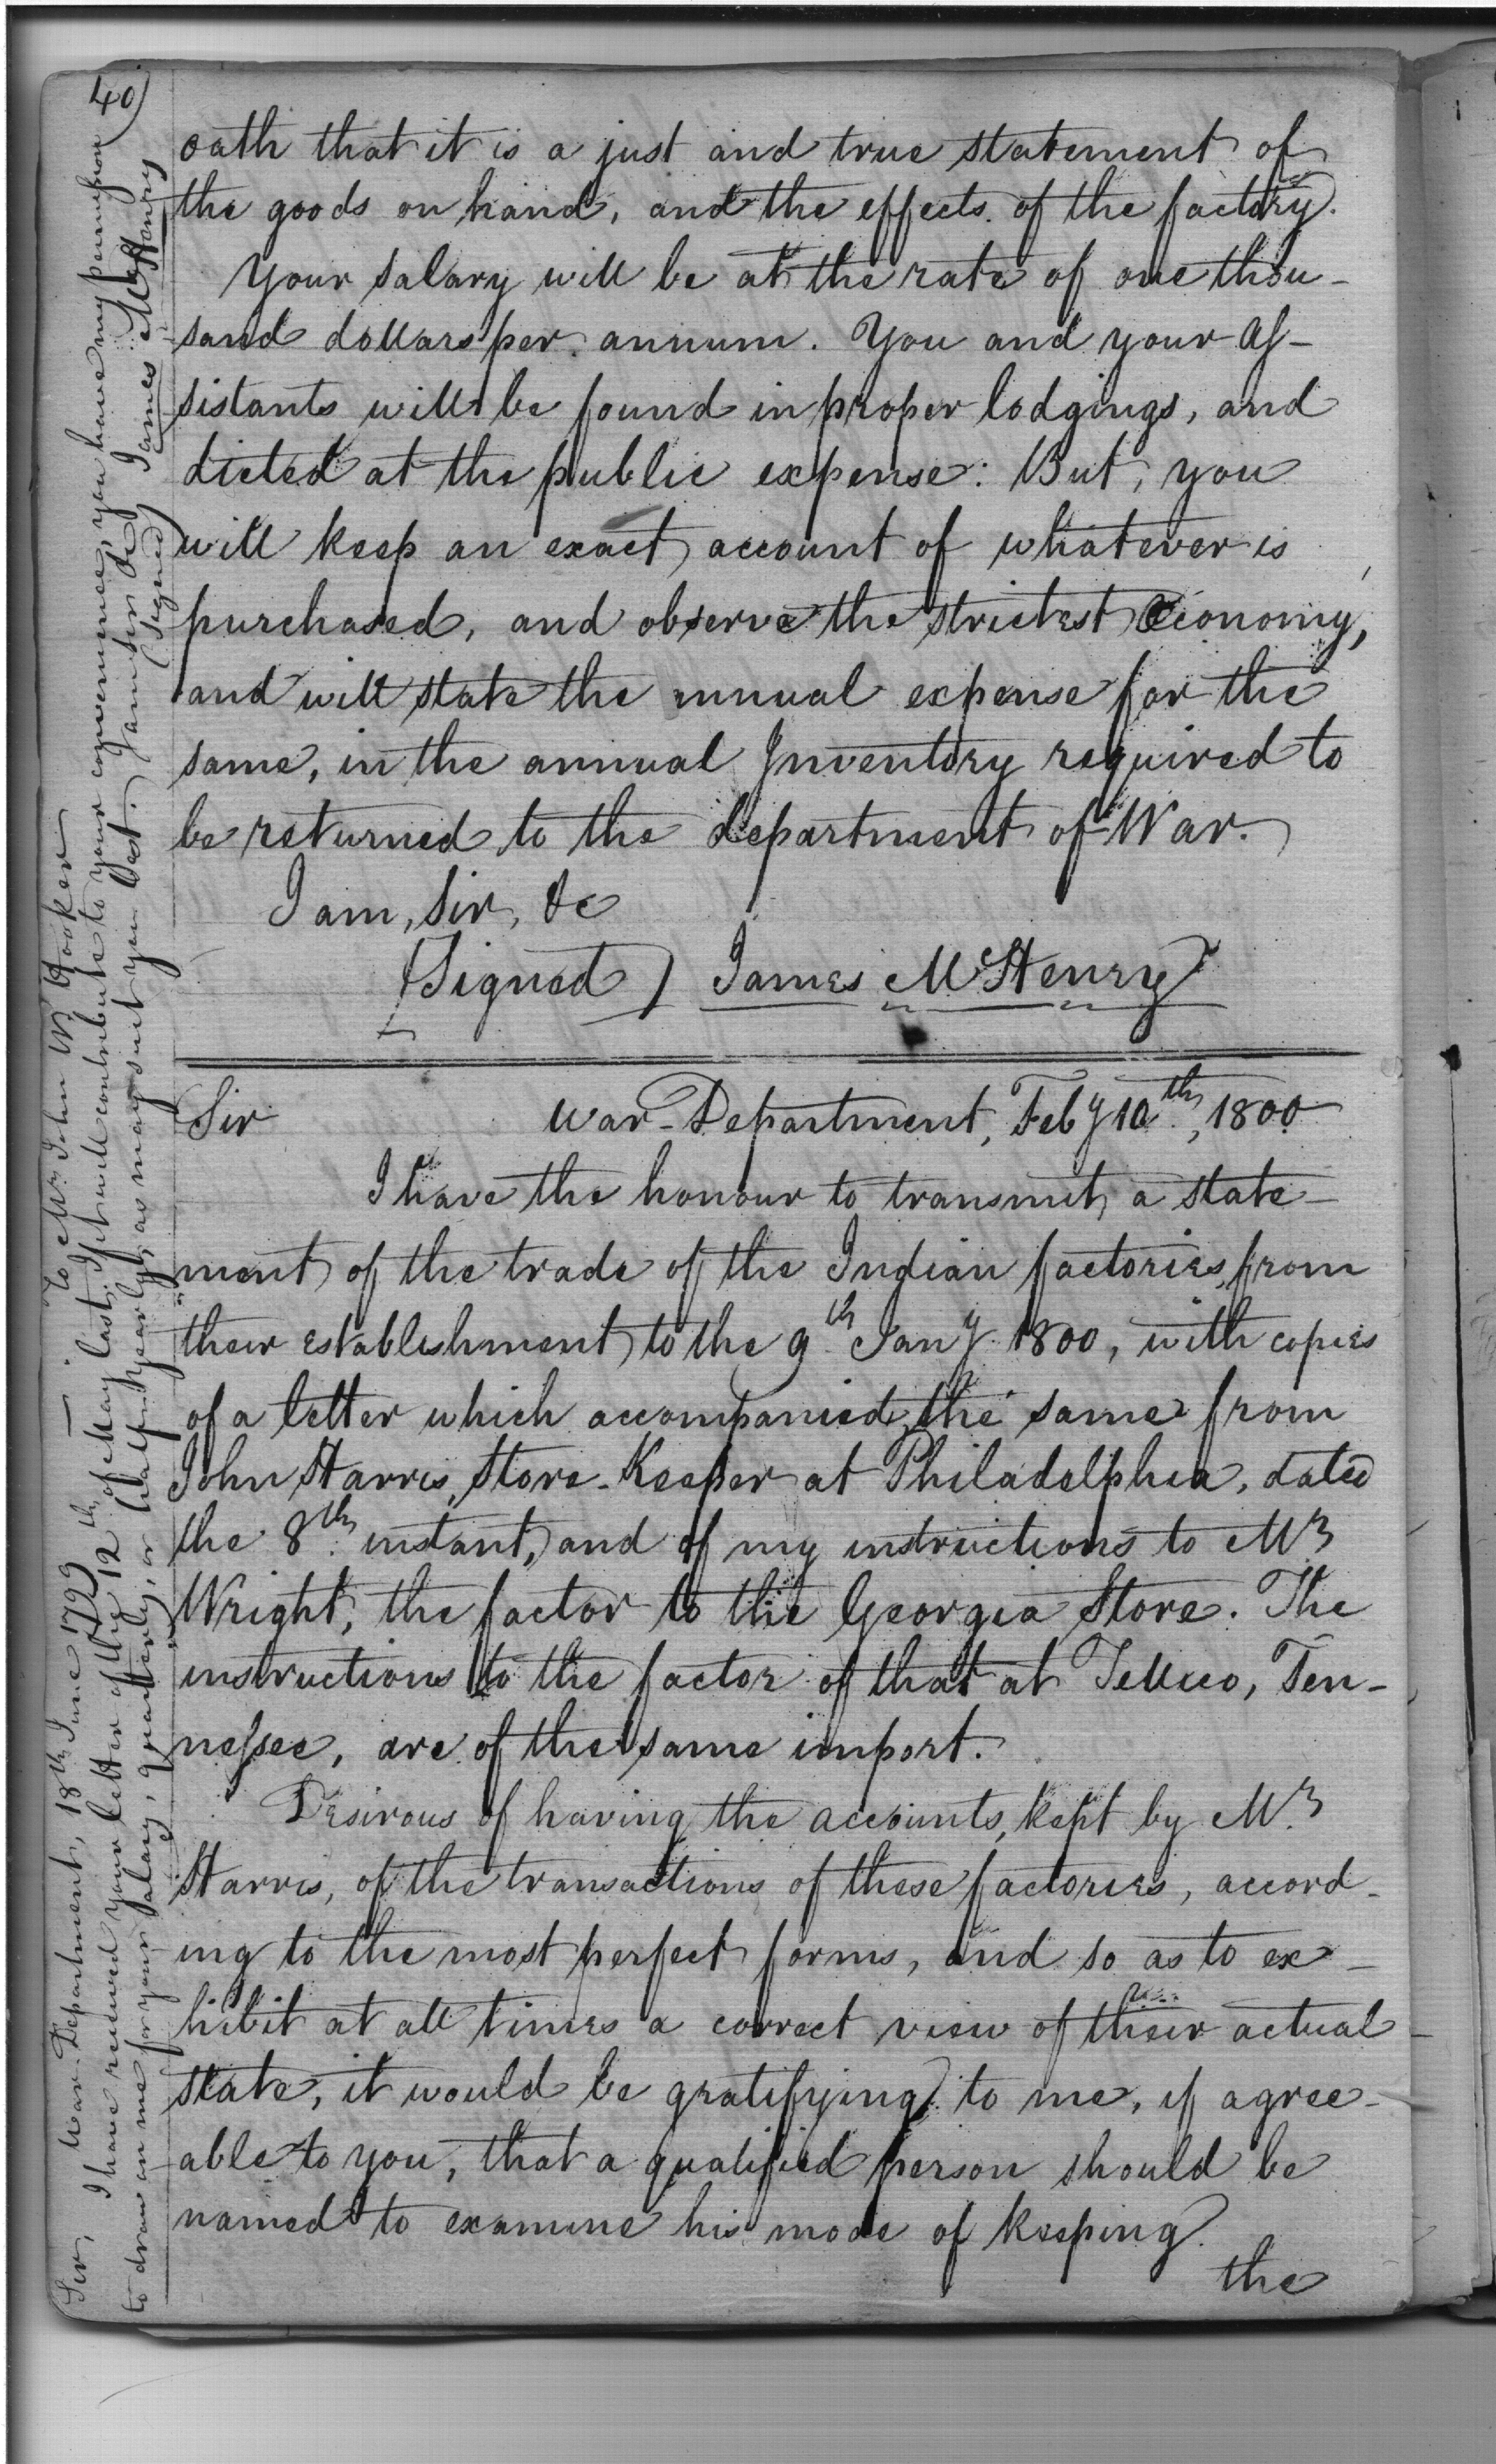 40)
oath that it is a just and true statement of
the goods on hand, and the effects of the factory.
Your salary will be at the rate of one thou-
sand dollars per annum. You and your As-
sistants will be found in proper lodgings, and
dieted at the public expense: But, you
will keep an exact account of whatever is
purchased, and observe the strictest Oeconomy,
and will state the annual expense for the
same, in the annual Inventory required to
be returned to the department of War.
I am, Sir, &c
(Signed) James McHenry
Sir War-Department, Feby 10th, 1800
I have the honour to transmit a state-
ment of the trade of the Indian factories, from
their establishment to the 9th Jany 1800, with copies
of a letter which accompanied the same from
John Harris, Store-Keeper at Philadelphia, dated
the 8th instant, and of my instructions to Mr
Wright, the factor to the Georgia Store. The
instructions to the factor of that at Tellico, Ten-
nessee, are of the same import.
Desirous of having the accounts, kept by Mr
Harris, of the transactions of these factories, accord-
ing to the most perfect forms, and so as to ex-
hibit at all times a correct view of their actual
state, it would be gratifying to me, if agree-
able to you, that a qualified person should be
named to examine his mode of keeping
the
Sir, War-Department, 18th June 1799 To Mr John W Hooker
I have received your letter of the 12th of May last, If it will contribute to your convenience, you have my permission
to draw on me for your salary, quarterly, or half-yearly, as may suit you best. I am Sir &c
(Signed) James McHenry